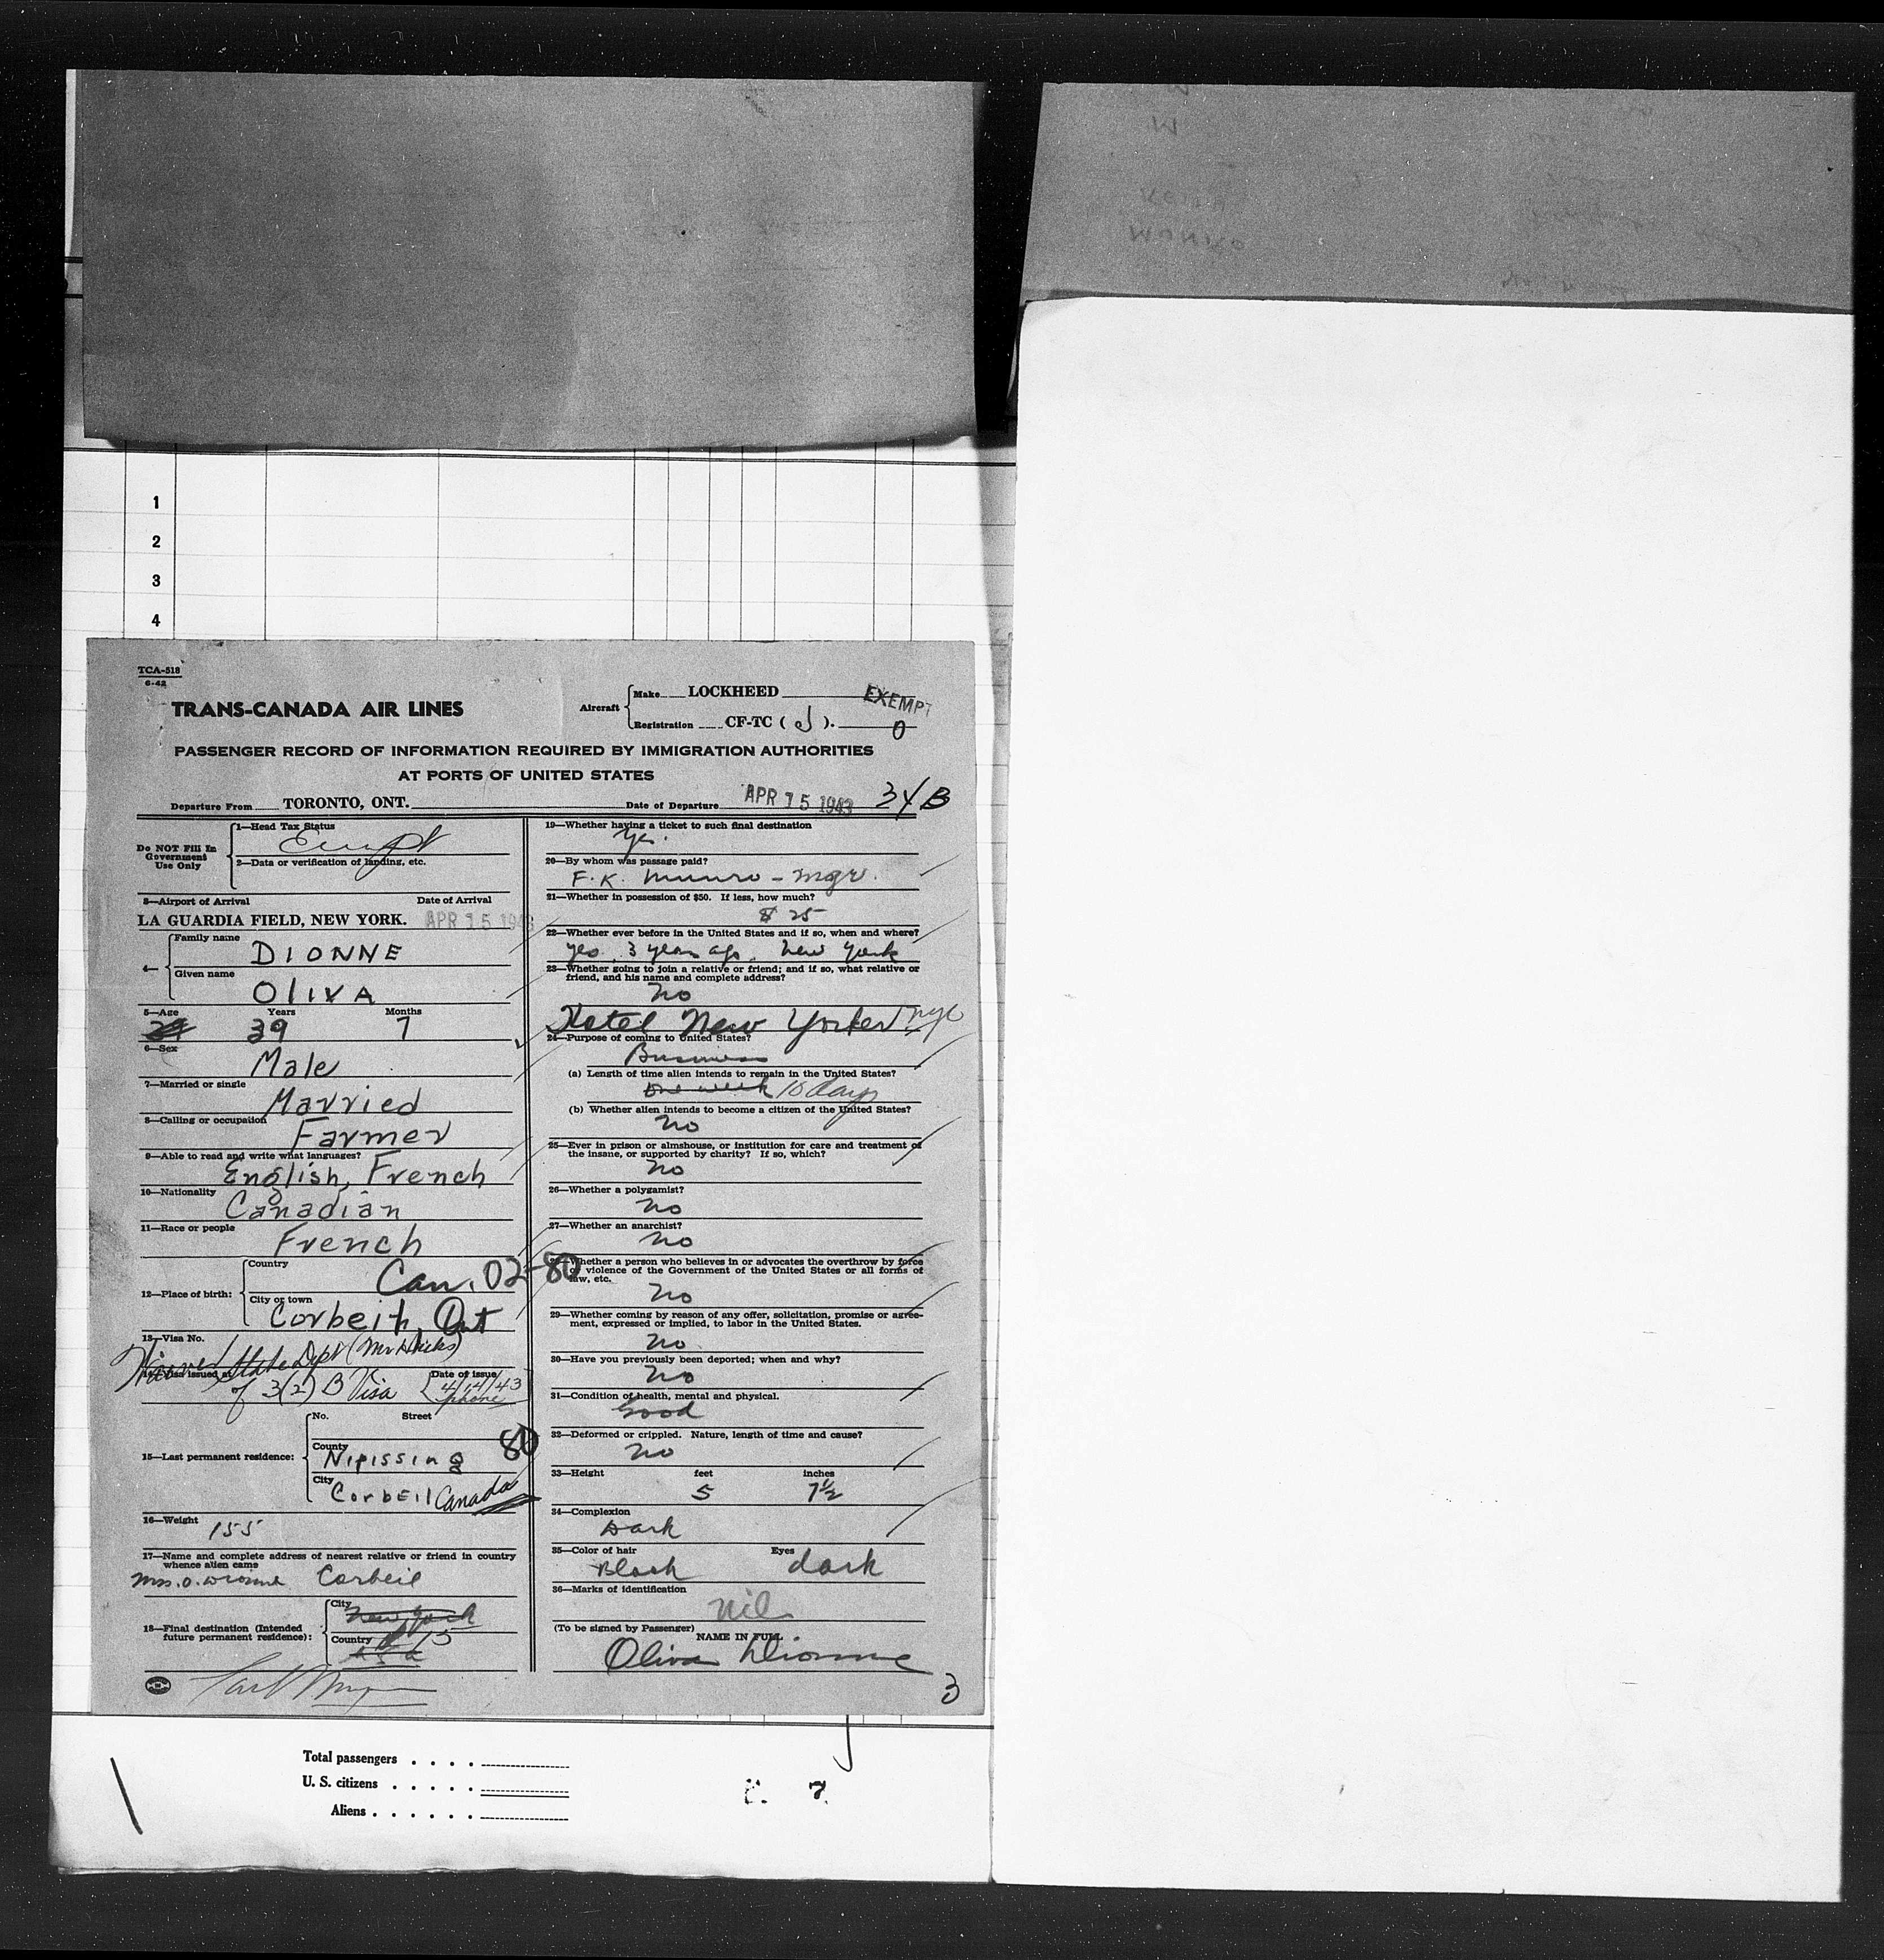 1
2
3
4
TCA-518
6-42
TRANS-CANADA AIR LINES
Aircraft
Make LOCKHEED
EXEMPT
Registration CF-TC ( J ).
0
PASSENGER RECORD OF INFORMATION REQUIRED BY IMMIGRATION AUTHORITIES
AT PORTS OF UNITED STATES
Departure From TORONTO, ONT.
Date of Departure APR 15 1943
34B
Do NOT Fill In
Government
Use Only
1—Head Tax Status
2—Data or verification of landing, etc.
3—Airport of Arrival Date of Arrival
LA GUARDIA FIELD, NEW YORK. APR 15 1943
4—
Family name
DIONNE
Given name
OlIVA
5—Age Years Months
39 7
6—Sex
Male
7—Married or single
Married
8—Calling or occupation
Farmer
9—Able to read and write what languages?
English, French
10—Nationality
Canadian
11—Race or people
French
12—Place of birth:
Country
Can. 02-80
City or town
Corbeil, Ont
13—Visa No.
Waived State Dept (Mr Hicks)
14—Visa issued at
of 3(2) B Visa
Date of issue
4/14/43
phone
15—Last permanent residence:
No. Street
County
Nipissing
80
City
CorbEil Canada
16—Weight
155
17—Name and complete address of nearest relative or friend in country
whence alien came
Mrs. O. Dionne Corbeil
18—Final destination (Intended
future permanent residence):
City
New York
Country
15
USA
19—Whether having a ticket to such final destination
Yes.
20—By whom was passage paid?
F.K. Munro - Mgr.
21—Whether in possession of $50. If less, how much?
$ 25
22—Whether ever before in the United States and if so, when and where?
Yes, 3 years ago, New York
23—Whether going to join a relative or friend; and if so, what relative or
friend, and his name and complete address?
No
Hotel New Yorker NYC
24—Purpose of coming to United States?
Business
(a) Length of time alien intends to remain in the United States?
one week 10 days
(b) Whether alien intends to become a citizen of the United States?
No
25—Ever in prison or almshouse, or institution for care and treatment of
the insane, or supported by charity? If so, which?
No
26—Whether a polygamist?
No
27—Whether an anarchist?
No
Whether a person who believes in or advocates the overthrow by force
violence of the Government of the United States or all forms of
law, etc.
No
29—Whether coming by reason of any offer, solicitation, promise or agree-
ment, expressed or implied, to labor in the United States.
No
30—Have you previously been deported; when and why?
No
31—Condition of health, mental and physical.
Good
32—Deformed or crippled. Nature, length of time and cause?
No
33—Height feet inches
5 7½
34—Complexion
Dark
35—Color of hair Eyes
Black dark
36—Marks of identification
Nil
(To be signed by Passenger)
NAME IN FULL
Oliva Dionne
3
Total passengers . . . .
U. S. citizens . . . . .
Aliens . . . . . .
7